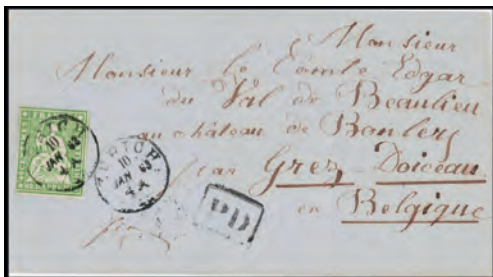 Monsieur
Monsieur le Comte Edgar
du Val de Beaulieu
au château de
par Grez Doiceau
en Belgique
ZÜRICH
10
JAN 63
4 A
PD